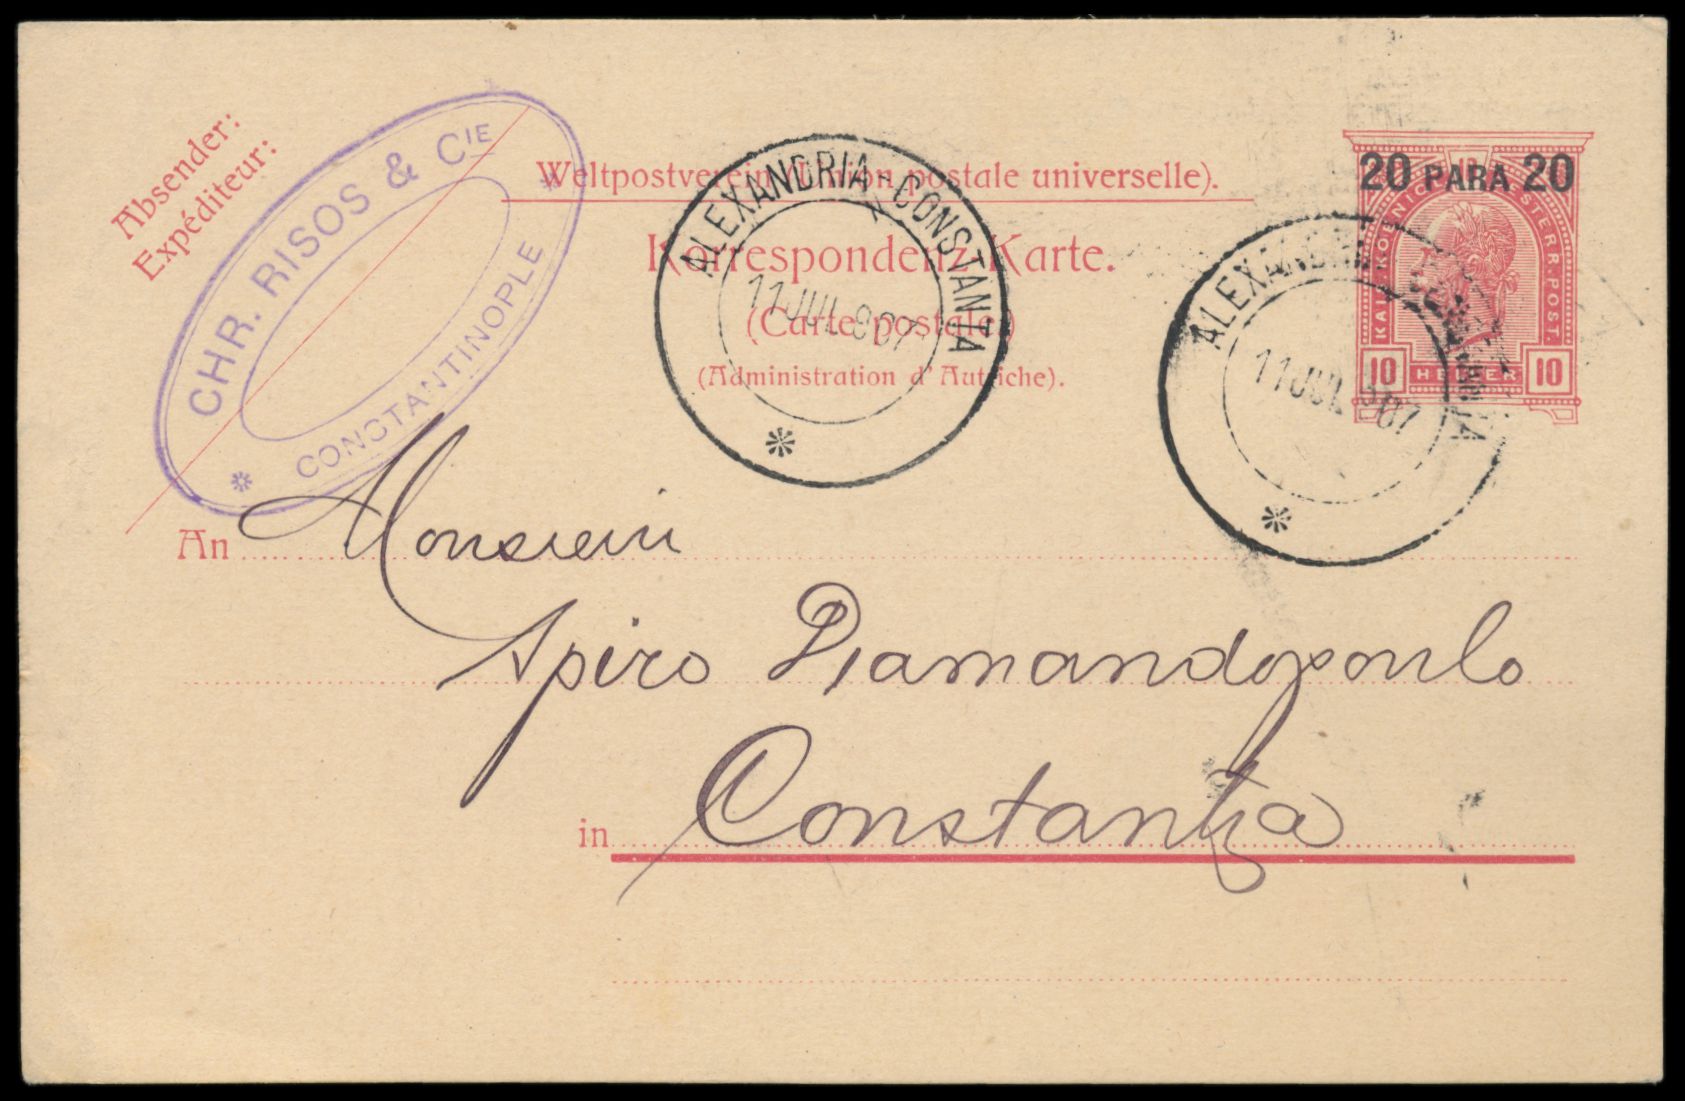 Absender:
Expéditeur:
CHR. RISOS & CIE
* CONSTANTINOPLE *
Weltpostverein (Union postale universelle).
Korrespondenz-Karte.
(Carte postale)
(Administration d'Autriche).
ALEXANDRIA - CONSTANTA
11 JUL 907
*
20 PARA 20
KAIS. KOENIGL. OESTERR. POST.
10 HELLER 10
ALEXANDRIA - CONSTANTA
11 JUL 907
*
An Monsieur
Spiro Diamandopoulo
in Constantza